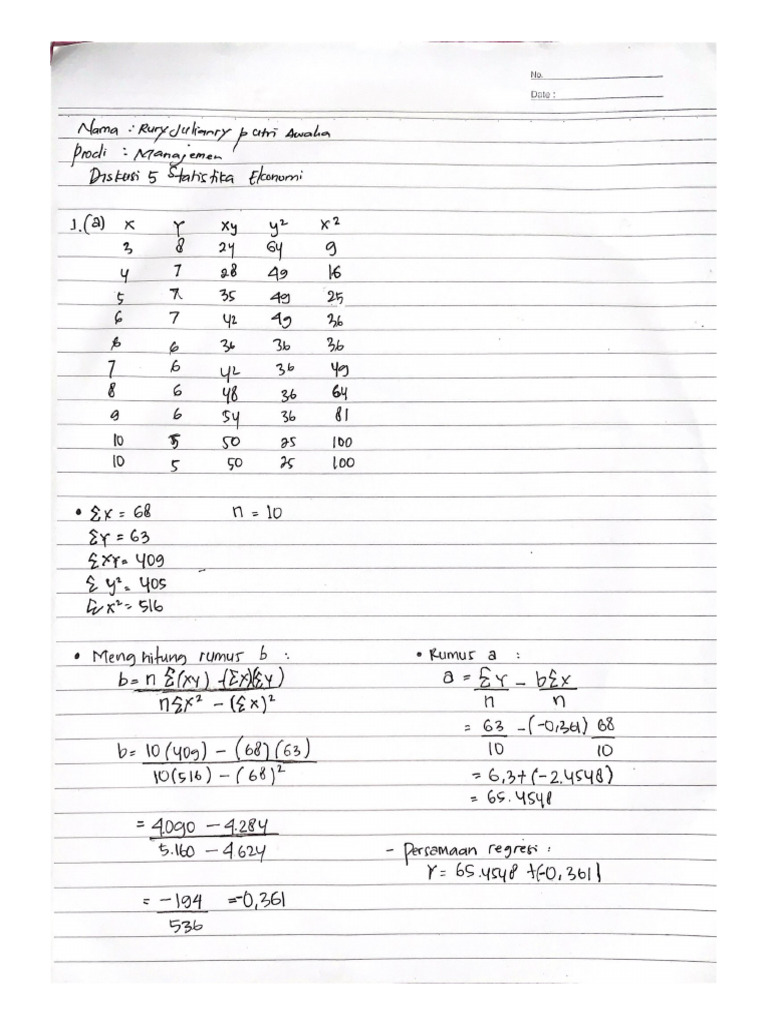 No.
Date :
Nama : Rury Julianry putri Awalia
Prodi : Manajemen
Diskusi 5 Statistika Ekonomi
1.(a) x Y xy y² x²
3 8 24 64 9
4 7 28 49 16
5 7 35 49 25
6 7 42 49 36
6 6 36 36 36
7 6 42 36 49
8 6 48 36 64
9 6 54 36 81
10 5 50 25 100
10 5 50 25 100
• Σx = 68 n = 10
ΣY = 63
ΣXY = 409
Σ y² = 405
Σx² = 516
• Menghitung rumus b :
b = n Σ(xy) - (Σx)(Σy)
nΣx² - (Σx)²
b = 10(409) - (68)(63)
10(516) - (68)²
= 4.090 - 4.284
5.160 - 4.624
= -194 = -0,361
536
• Rumus a :
a = ΣY - bΣx
n n
= 63 - (-0,361) 68
10 10
= 6,3 + (-2.4548)
= 65.4548
- Persamaan regresi :
Y = 65.4548 + (-0,361)